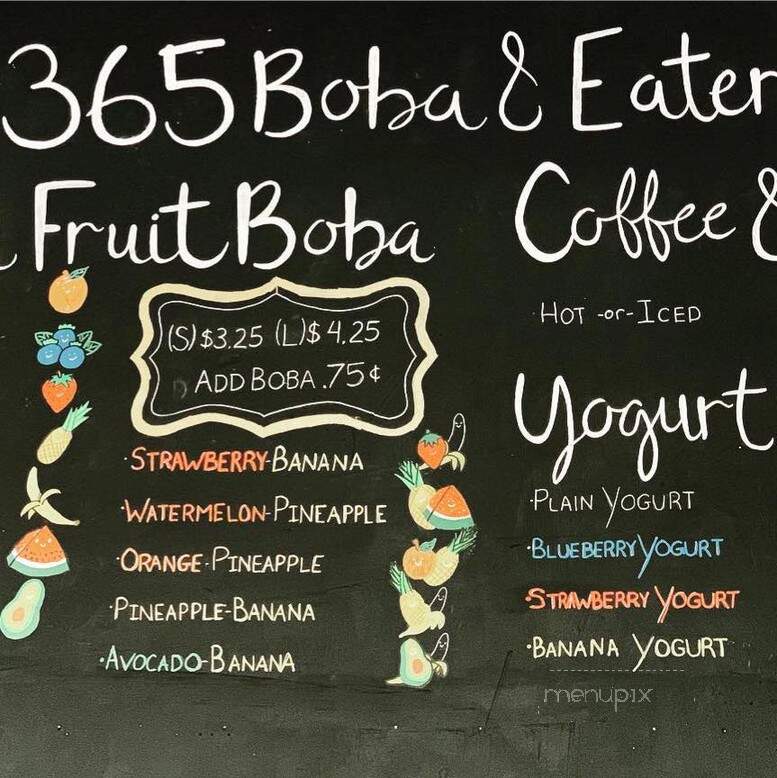 365 Boba & Eater
Fruit Boba
(S) $3.25 (L) $4.25
ADD BOBA .75¢
·STRAWBERRY-BANANA
·WATERMELON-PINEAPPLE
·ORANGE-PINEAPPLE
·PINEAPPLE-BANANA
·AVOCADO-BANANA
Coffee &
·HOT -or- ICED
Yogurt
·PLAIN YOGURT
·BLUEBERRY YOGURT
·STRAWBERRY YOGURT
·BANANA YOGURT
menupix